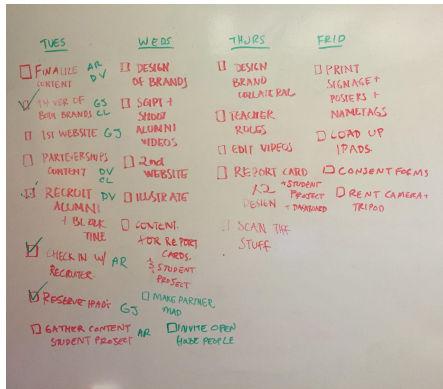 TUES
FINALIZE AR
CONTENT DV
1st VER OF GS
BOTH BRANDS CL
1ST WEBSITE GJ
PARTERSHIPS
CONTENT DV
CL
RECRUIT DV
ALUMNI
+ BLOCK
TIME
CHECK IN W/ AR
RECRUITER
RESERVE IPADS
GJ
GATHER CONTENT AR
STUDENT PROJECT
WEDS
DESIGN
OF BRANDS
SCIPT +
SHOOT
ALUMNI
VIDEOS
2nd
WEBSITE
ILLUSTRATE
CONTENT
FOR REPORT
CARDS
STUDENT
PROJECT
MAKE PARTNER
INVITE OPEN
HOUSE PEOPLE
THURS
DESIGN
BRAND
COLLATERAL
TEACHER
ROLES
EDIT VIDEOS
REPORT CARD
+ STUDENT
PROJECT
DESIGN
+ DASHBOARD
SCAN TIFF
STUFF
FRID
PRINT
SIGNAGE +
POSTERS +
NAMETAGS
LOAD UP
IPADS
CONSENT FORMS
RENT CAMERA +
TRIPOD